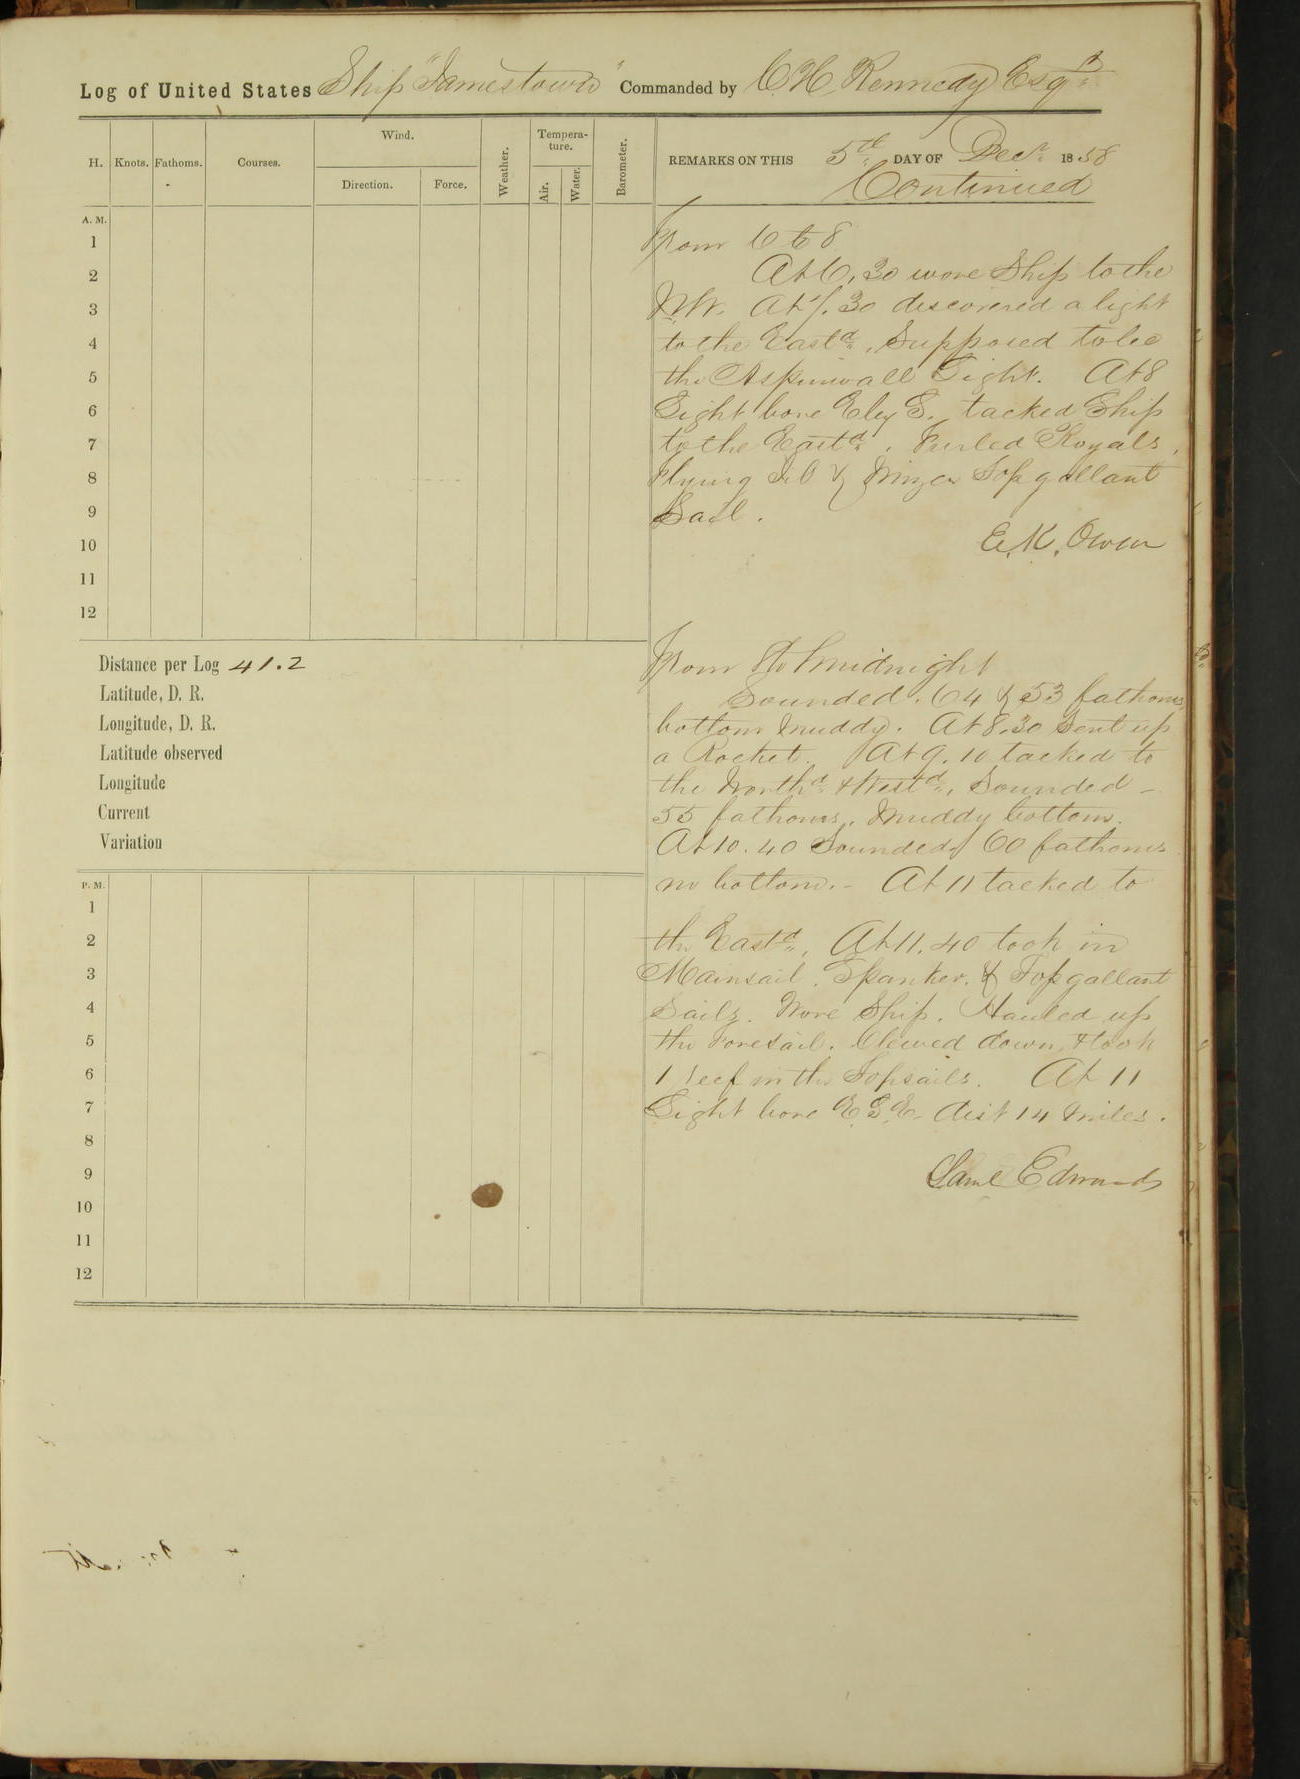 Log of United States Ship "Jamestown" Commanded by C H Kennedy Esqr
H. Knots. Fathoms. Courses. Wind. Direction. Force. Weather. Tempera-ture. Air. Water. Barometer. REMARKS ON THIS 5th DAY OF Decr 1858
Continued
A. M.
From 6 to 8
1
At 6,30 wore Ship to the
2
NW. At 7.30 discovered a light
3
to the Eastd, Supposed to be
4
the Aspinwall Light. At 8
5
Light bore E by S. tacked Ship
6
to the Eastd. Furled Royals,
7
Flying Jib & Mizen Top gallant
8
Sail.
9
E. K. Owen
10
11
12
From 8 to Midnight
Distance per Log 41.2
Sounded. 64 & 53 fathoms
Latitude, D. R.
bottom muddy. At 8.30 Sent up
Longitude, D. R.
a Rocket. At 9.10 tacked to
Latitude observed
the Northd & Westd, Sounded -
Longitude
55 fathoms, Muddy bottom.
Current
At 10.40 Sounded, 60 fathoms
Variation
no bottom. - At 11 tacked to
P. M.
1
the Eastd, At 11.40 took in
2
Mainsail, Spanker, & Top gallant
3
Sails. Wore Ship. Hauled up
4
the Foresail. Clewed down, & took
5
1 reef in the Topsails. At 11
6
Light bore E.S.E. dist 14 Miles.
7
8
Saml Edwards
9
10
11
12